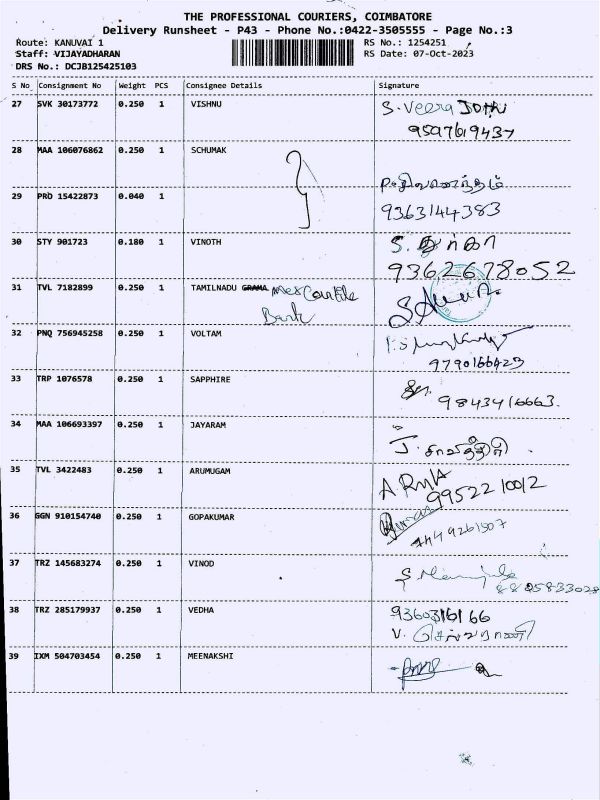 THE PROFESSIONAL COURIERS, COIMBATORE
Delivery Runsheet - P43 - Phone No.:0422-3505555 - Page No.:3
Route: KANUVAI 1 RS No.: 1254251
Staff: VIJAYADHARAN RS Date: 07-Oct-2023
DRS No.: DCJB125425103
S No Consignment No Weight PCS Consignee Details Signature
27 SVK 30173772 0.250 1 VISHNU S. Veera Jothi
9597619437
28 MAA 106076862 0.250 1 SCHUMAK
29 PRD 15422873 0.040 1
9363144383
30 STY 901723 0.180 1 VINOTH
9362678052
31 TVL 7182899 0.250 1 TAMILNADU GRAMA Mercantile
Bank
32 PNQ 756945258 0.250 1 VOLTAM
9790166423
33 TRP 1076578 0.250 1 SAPPHIRE
9843416663.
34 MAA 106693397 0.250 1 JAYARAM
J. சாவித்திரி
35 TVL 3422483 0.250 1 ARUMUGAM
9952210012
36 GGN 910154740 0.250 1 GOPAKUMAR
37 TRZ 145683274 0.250 1 VINOD
S Manjula
8825833028
38 TRZ 285179937 0.250 1 VEDHA 9360316166
V. செல்வராணி
39 IXM 504703454 0.250 1 MEENAKSHI